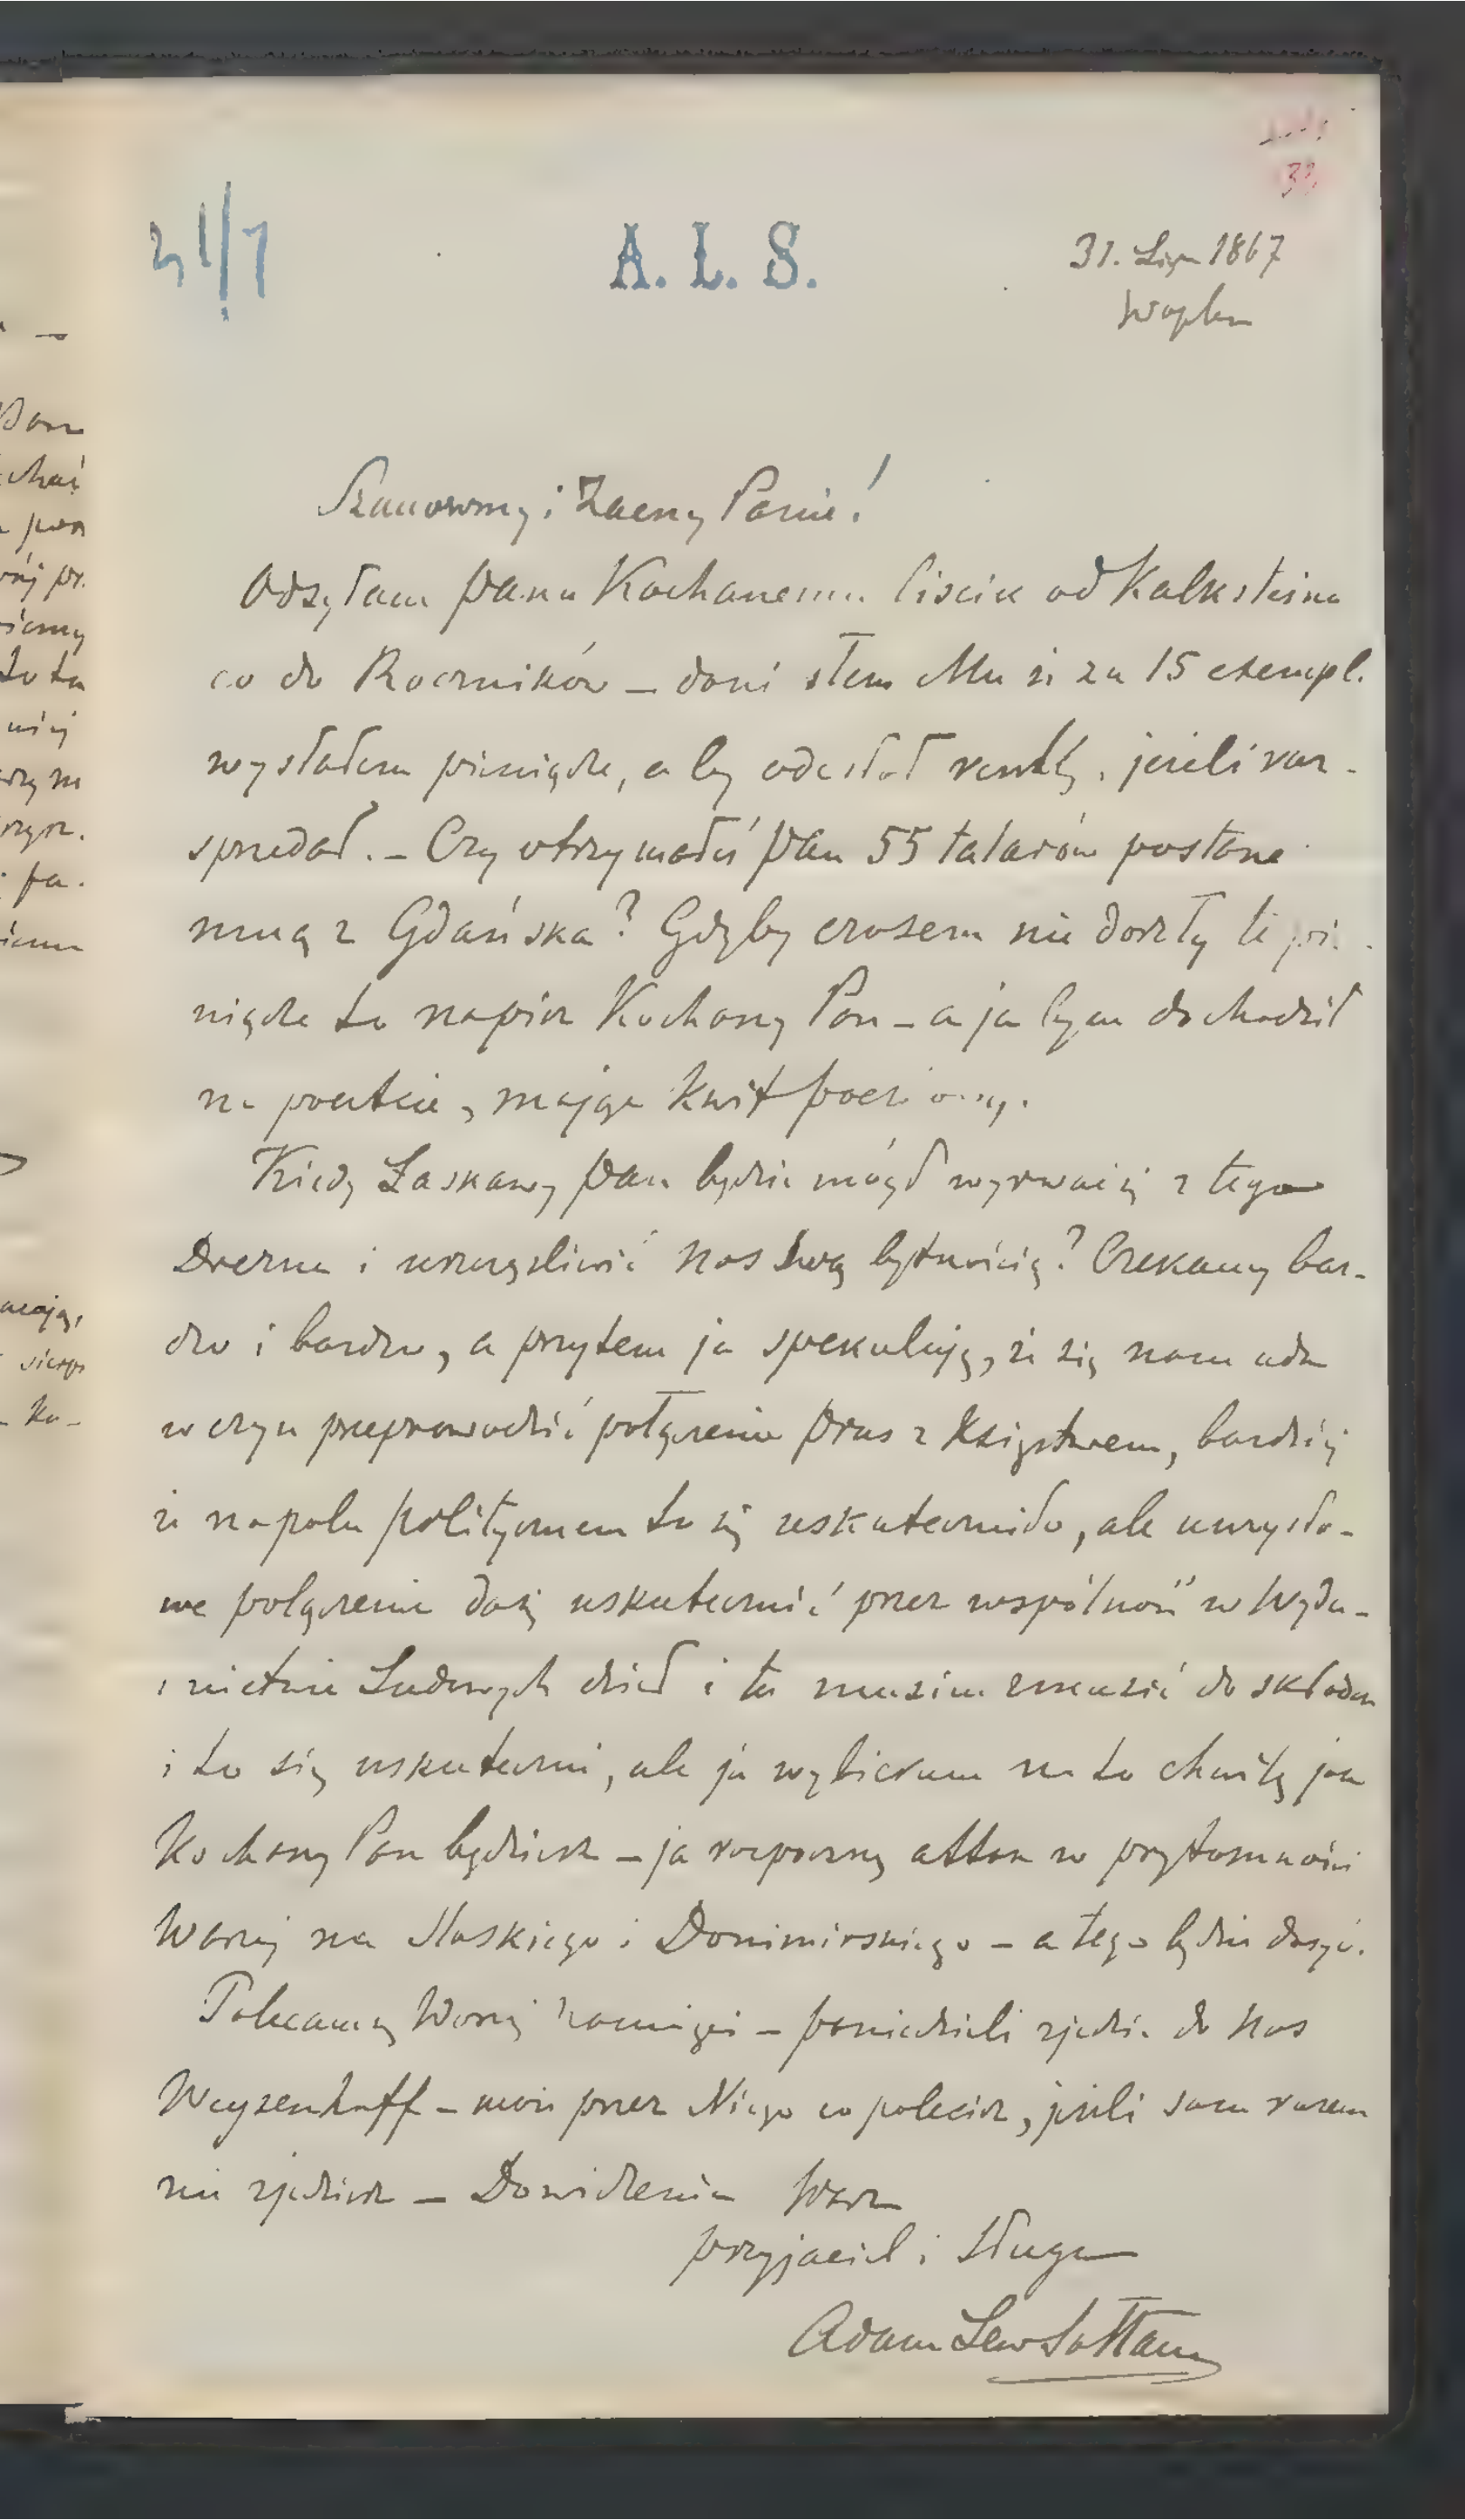 31/7
A. L. S.
31. Lip 1867
Waplew
Szanowny i Zacny Panie!
Odsyłam Panu Kochanemu liścik od Kalksteina
co do Roczników – doni słem Mu że za 15 exempl.
wysłałem pieniądze, a by odesłał resztę, jeżeli roz-
sprzedał. – Czy otrzymałeś Pan 55 talarów posłane
mną z Gdańska? Gdyby czasem nie doszły te pie-
niądze to napisz Kochany Pan – a ja będę dochodził
na poczcie, mając kwit pocztowy.
Kiedy Łaskawy Pan będzie mógł wyrwać się z tego
Drezna i uszczęśliwić nas swą bytnością? Czekamy bar-
dzo i bardzo, a przytem ja spekuluję, że się nam uda
w czyn przeprowadzić połączenie Prus z Księstwem, bardziej
że na polu politycznem to się uskuteczniło, ale umysło-
we połączenie da się uskutecznić przez wspólność w Wyda-
wnictwie Ludowych dzieł i tu musim zmusić do składek
i to się uskuteczni, ale ja wybieram na to chwilę jak
Kochany Pan będziesz – ja rozpocznę attak w przytomności
Waszej na Slaskiego i Donimirskiego – a tego będzie dosyć.
Polecamy Waszej pamięci – poniedzieli zjedzie do nas
Weyssenhoff – może przez Niego co polecisz, jeżeli sam razem
nie zjedziesz – Dowidzenia Wasz
przyjaciel i Sługa
Adam Lew Sołtan